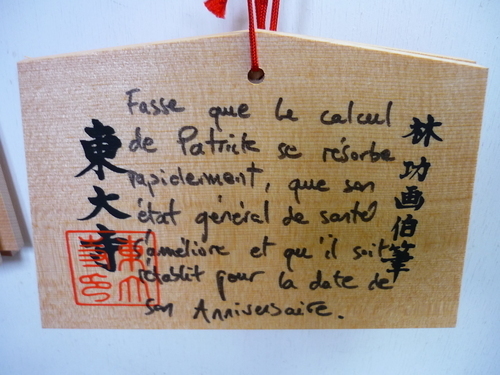 Fasse que le calcul
de Patrick se résorbe
rapidement, que son
état général de santé
s'améliore et qu'il soit
rétablit pour la date de
son Anniversaire.
林功画伯筆
東大寺